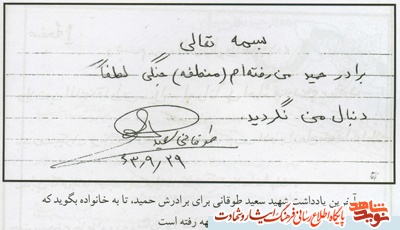 بسمه تعالی
برادر حمید من رفته‌ام (منطقه) جنگی لطفاً
دنبال من نگردید.
طوقانی سعید
۶۳،۹،۲۹
آخرین یادداشت شهید سعید طوقانی برای برادرش حمید، تا به خانواده بگوید که
هه رفته است
نوید شاهد
پایگاه اطلاع رسانی فرهنگ ایثار و شهادت